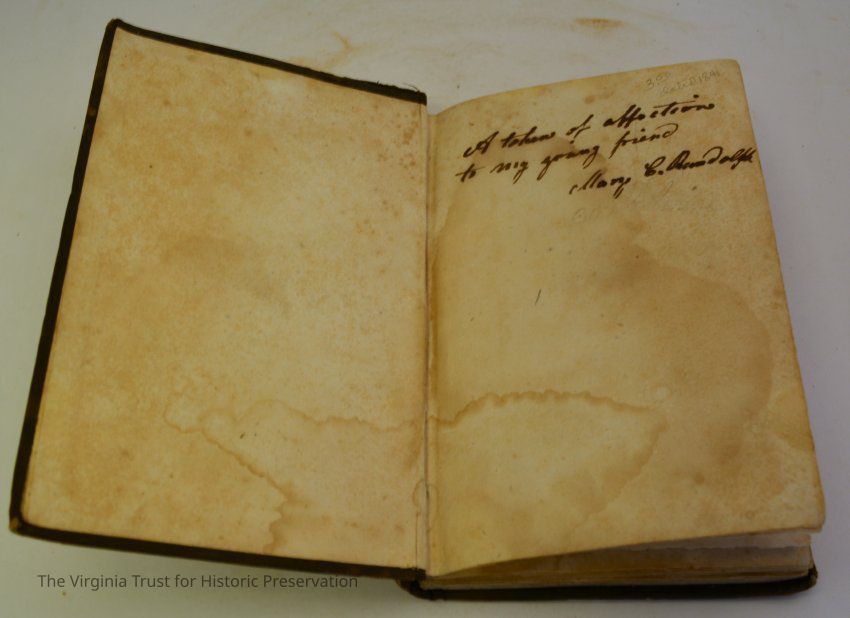 A token of affection
to my young friend
Mary E. Randolph
The Virginia Trust for Historic Preservation